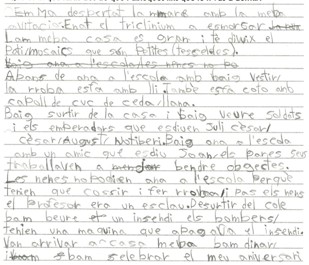 Em Ma despertat la mare amb la meba
Enat el triclinium a esmorsar
Lam meba casa es gran i té dluix el
Pati/mosaics que són Petites (teseŀes).
Baig ana a l'escola les nenes no po
Abans de ana a l'escola amb baig vestir/
la rroba esta amb lli. També esta coto amb
capoll de cuc de ceda/llana.
Baig surtir de la casa i baig veure soldats
i els emberadors que esdiuen Juli cèsar/
cèsar/August/ Natiberi. Baig ana a l'escola
amb un amic que esdiu Joan, els pares seus
traballaven a bendre obgectes.
Les nenes no podien ana a l'esco Perquè
tenien que cossir i fer rroba/i pas els nens
el Profesor era un esclau. Desurtir del cole
bam beure un insendi els bombers/
tenien una maquina que apagava el insendi.
Van arrivar a casa meba bam dinar/
i bam selebrar el meu aniversari